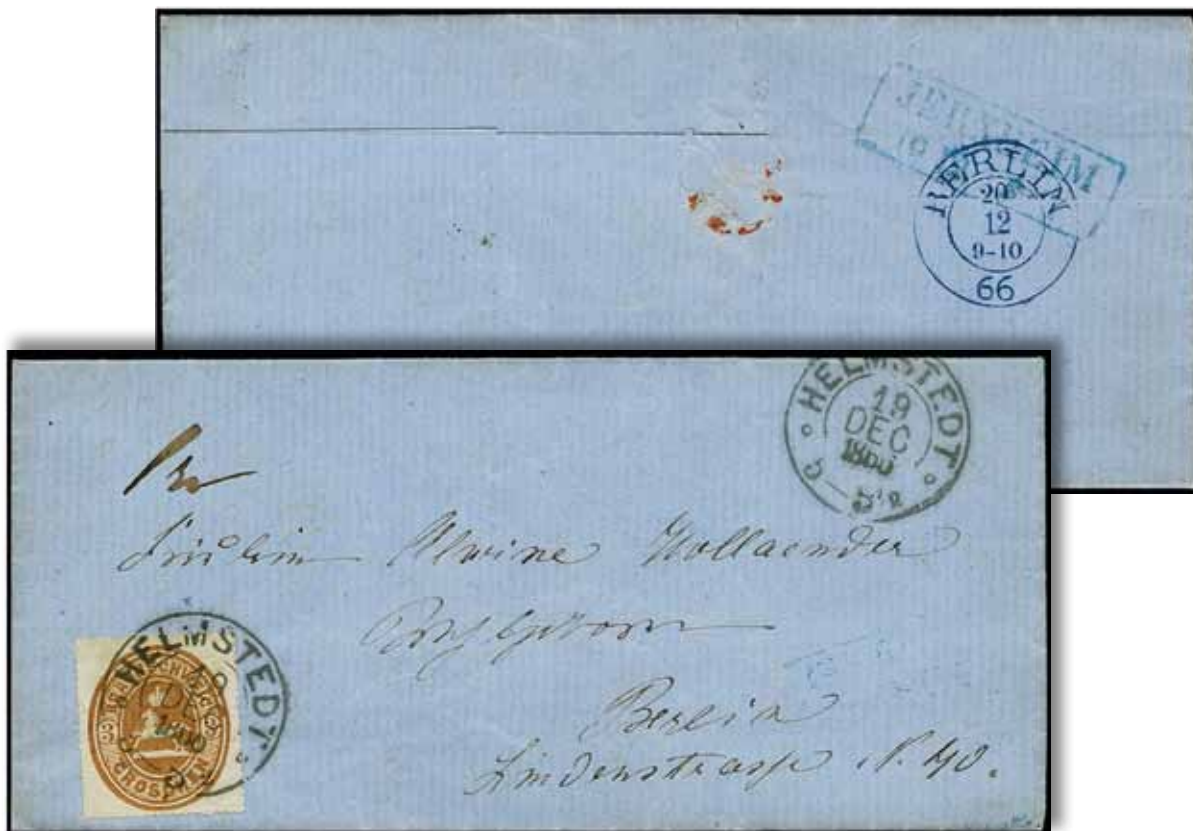 JERXHEIM
19
BERLIN
20
12
9-10
66
HELMSTEDT
19
DEC
1866
5 – 5½
Fräulein Alwine Hollaender
Berlin
Lindenstrasse N. 40.
HELMSTEDT
19
DEC
1866
BRAUNSCHWEIG
3 GROSCHEN 3